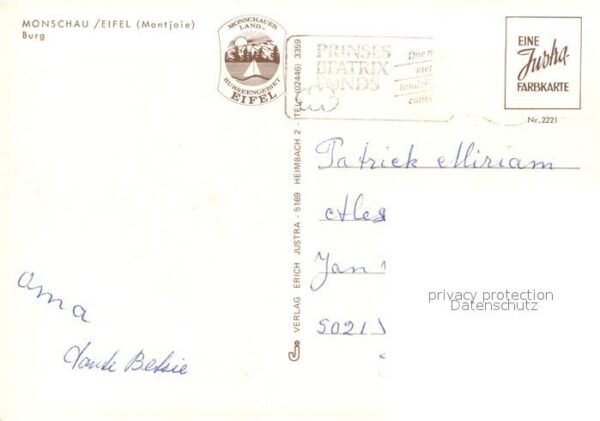 MONSCHAU /EIFEL (Montjoie)
Burg
MONSCHAUER
LAND
RURSEENGEBIET
EIFEL
PRINSES
BEATRIX
FONDS
EINE
Justra-
FARBKARTE
Nr. 2221
VERLAG ERICH JUSTRA - 5169 HEIMBACH 2 - TEL. (02446) 3359
Patrick Miriam
Jan
5021
privacy protection
Datenschutz
oma
tante Betsie